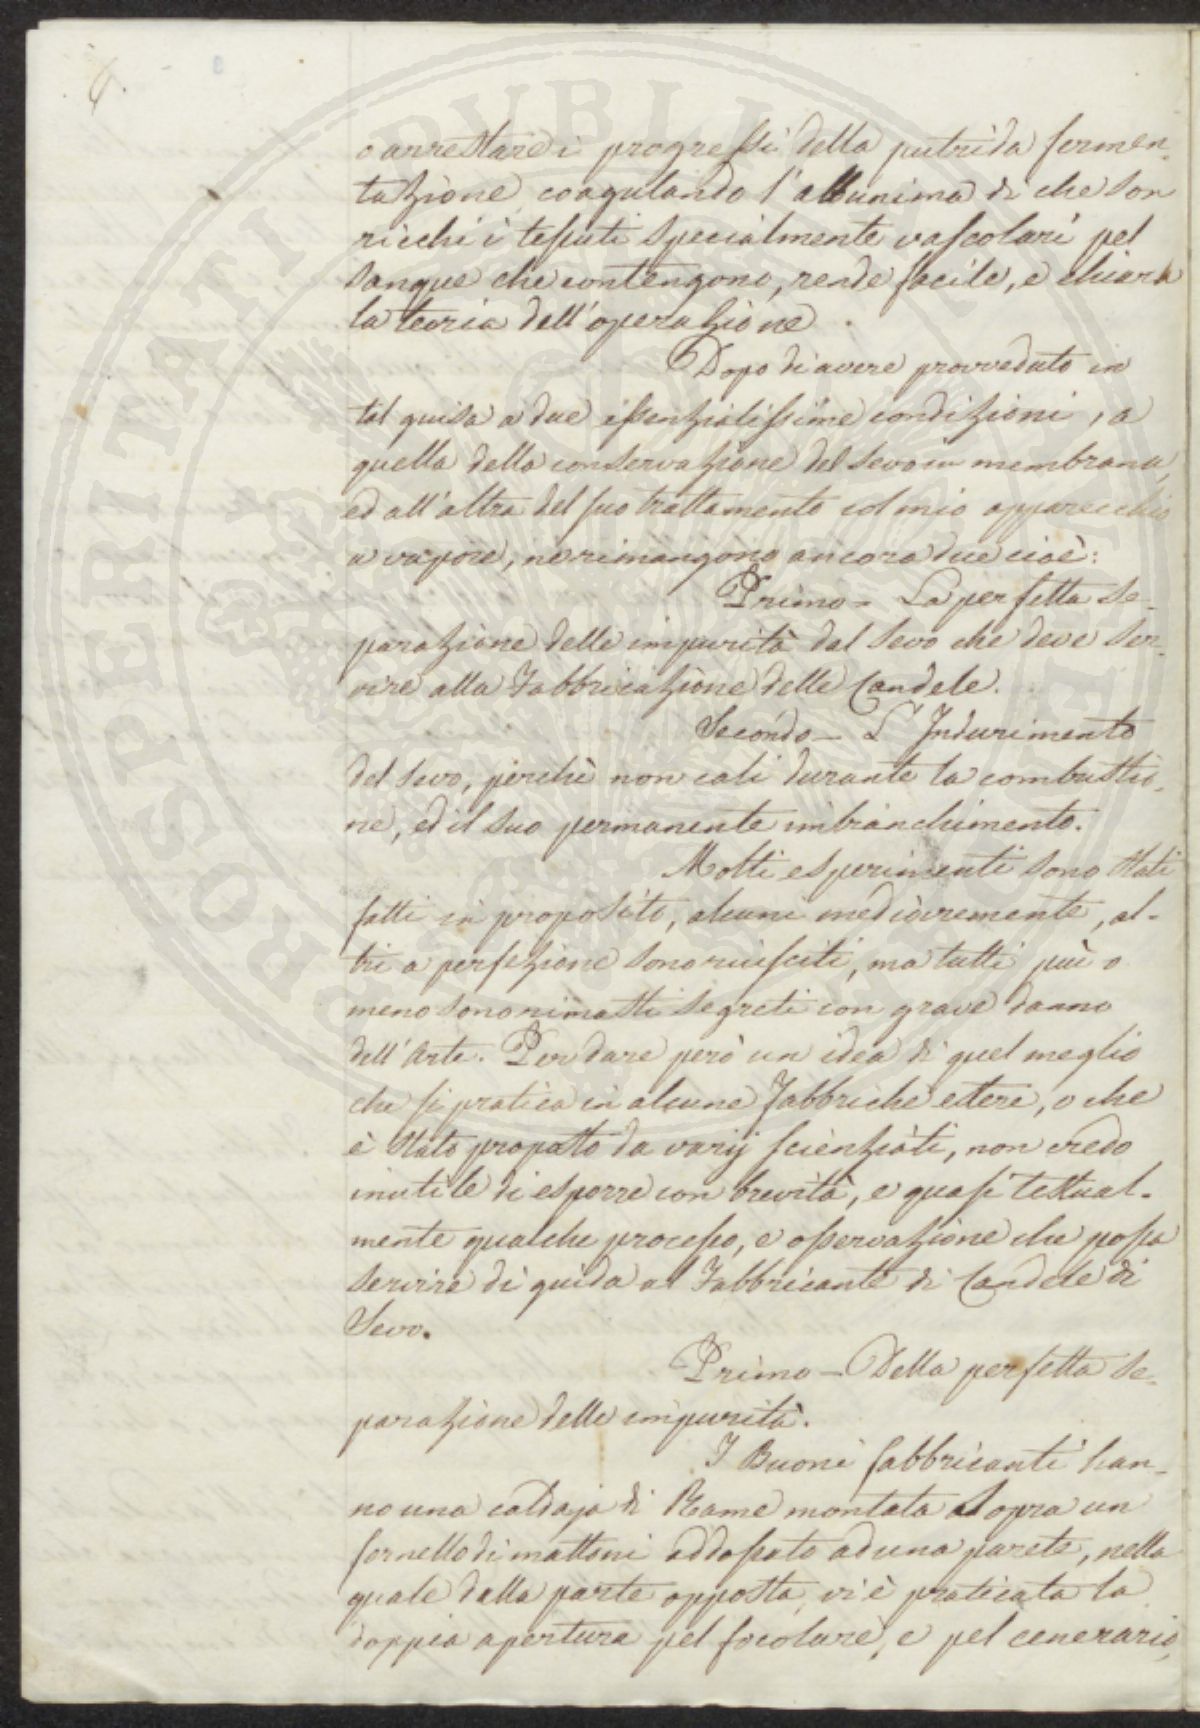 6.
o arrestare i progressi della putrida fermen-
tazione, coagulando l'albunima di che son
ricchi i tessuti specialmente vascolari pel
sangue che contengono, rende facile, e chiara
la teoria dell'operazione.
Dopo di avere provveduto in
tal guisa a due essenzialissime condizioni, a
quella della conservazione del sevo in membrana,
ed all'altra del suo trattamento col mio apparecchio
a vapore, ne rimangono ancora due cioè:
Primo - La perfetta se-
parazione delle impurità dal sevo che deve ser-
vire alla Fabbricazione delle Candele.
Secondo - L'Indurimento
del sevo, perchè non coli durante la combustio-
ne, ed il suo permanente imbianchimento.
Molti esperimenti sono stati
fatti in proposito, alcuni mediocremente, al-
tri a perfezione sono riusciti, ma tutti più o
meno sono rimasti segreti con grave danno
dell'Arte. Per dare però un idea di quel meglio
che si pratica in alcune Fabbriche estere, o che
è stato proposto da varij scienziati, non credo
inutile di esporre con brevità, e quasi testual-
mente qualche processo, e osservazione che possa
servire di guida al Fabbricante di Candele di
Sevo.
Primo - Della perfetta se-
parazione delle impurità.
I Buoni fabbricanti han-
no una caldaja di Rame montata sopra un
fornello di mattoni addossato ad una parete, nella
quale dalla parte opposta, vi è praticata la
doppia apertura pel focolare, e pel cenerario,
PROSPERITATI PUBLICAE